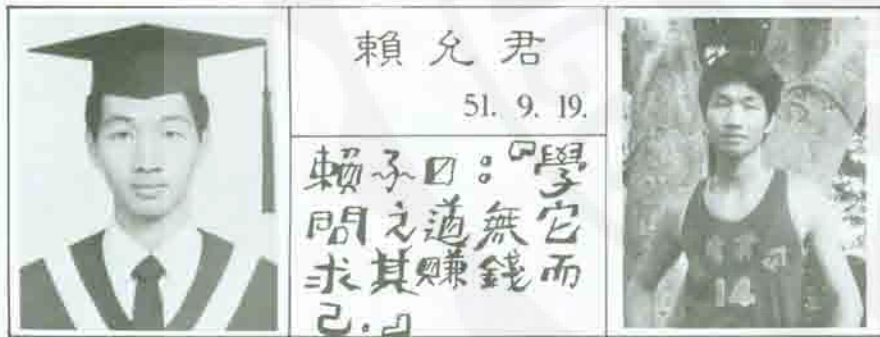 賴允君
51. 9. 19.
賴子曰：『學
問之道無它
求其賺錢而
已.』
14